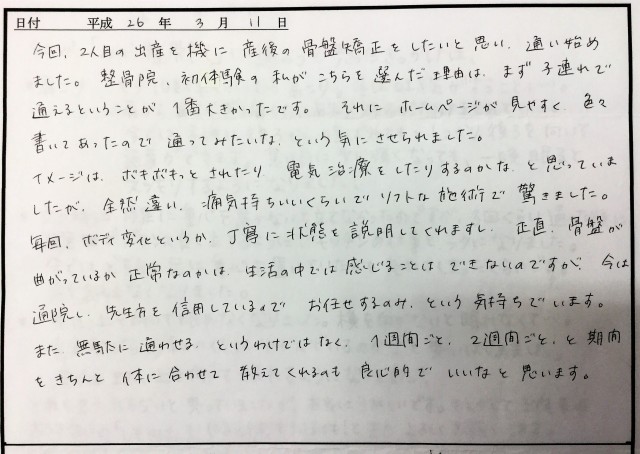 日付 平成 26 年 3 月 11 日
今回、2人目の出産を機に 産後の骨盤矯正をしたいと思い、通い始め
ました。整骨院、初体験の私がこちらを選んだ理由は、まず子連れで
通えるということが 1番大きかったです。それに ホームページが見やすく、色々
書いてあったので 通ってみたいな、という気にさせられました。
イメージは、ボキボキっとされたり、電気治療をしたりするのかな、と思っていま
したが、全然違い、痛気持ちいいくらいでソフトな施術で驚きました。
毎回、ボディ変化というか、丁寧に状態を説明してくれますし、正直、骨盤が
曲がっているか 正常なのかは、生活の中では感じることはできないのですが、今は
通院し、先生方を信用しているので お任せするのみ、という気持ちでいます。
また、無駄に通わせる、というわけではなく、1週間ごと、2週間ごと、と期間
をきちんと体に合わせて教えてくれるのも良心的でいいなと思います。